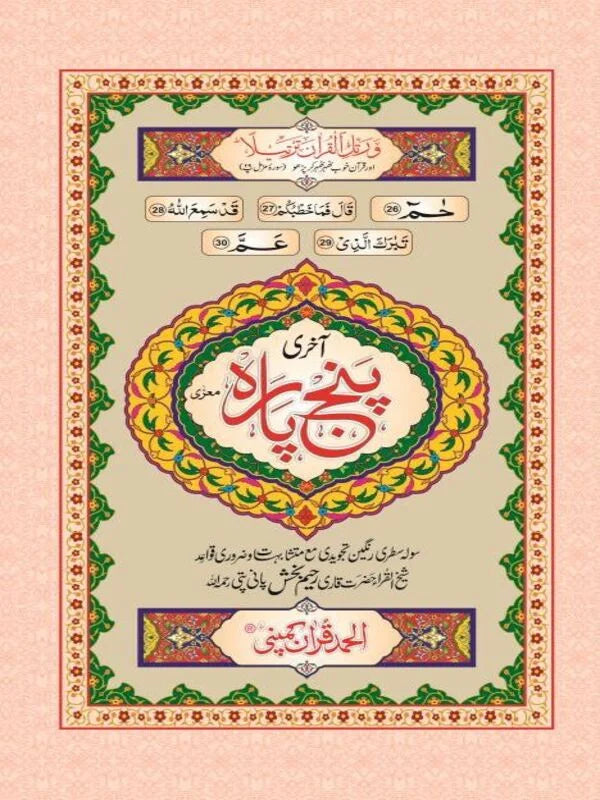 وَرَتِّلِ الْقُرْاٰنَ تَرْتِيْلًا
اور قرآن خوب ٹھہر ٹھہر کر پڑھو (سورۃ مزمل پ۲۹)
حٰمٓ 26 قَالَ فَمَا خَطْبُكُمْ 27 قَدْ سَمِعَ اللهُ 28
تَبٰرَكَ الَّذِىْ 29 عَمَّ 30
آخری
پنج پارہ
معرٰی
سولہ سطری رنگین تجویدی مع متشابہت و ضروری قواعد
شیخ القراء حضرت قاری رحیم بخش پانی پتی رحمہ اللہ
الحمد قرآن کمپنی ®